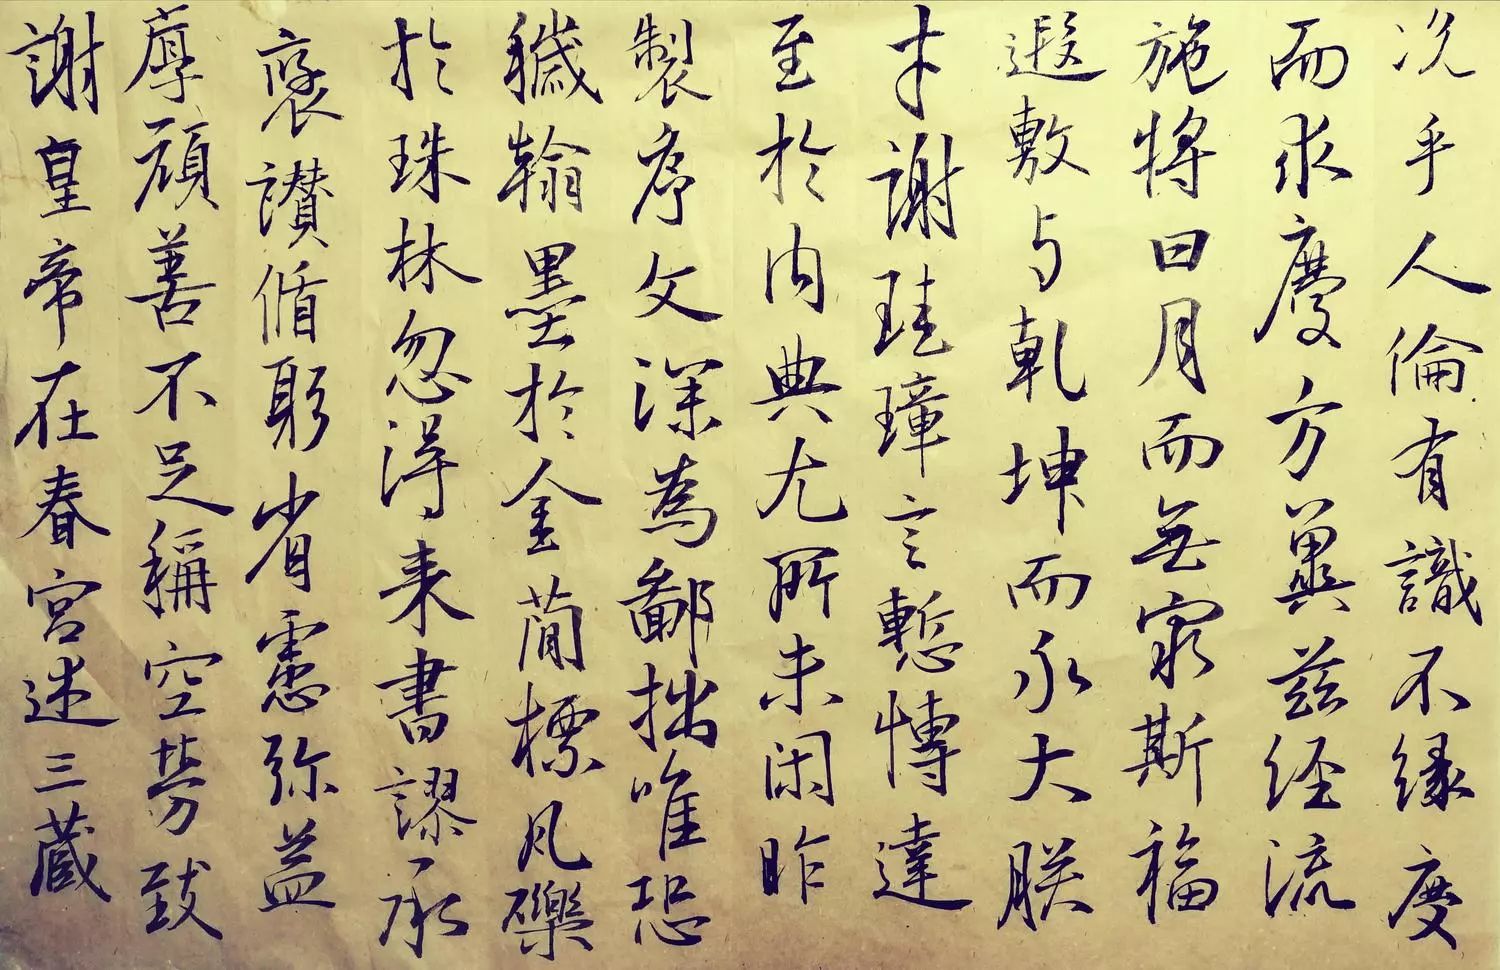 况乎人倫有識不緣慶
而求慶方冀茲経流
施將日月而無窮斯福
遐敷与乹坤而永大朕
才謝珪璋言慙博達
至於内典尤所未閑昨
製序文深為鄙拙唯恐
穢翰墨於金蕳標凡礫
於珠林忽淂来書謬承
褒讃循躬省慮弥益
厚顔善不足稱空勞致
謝皇帝在春宮述三蔵